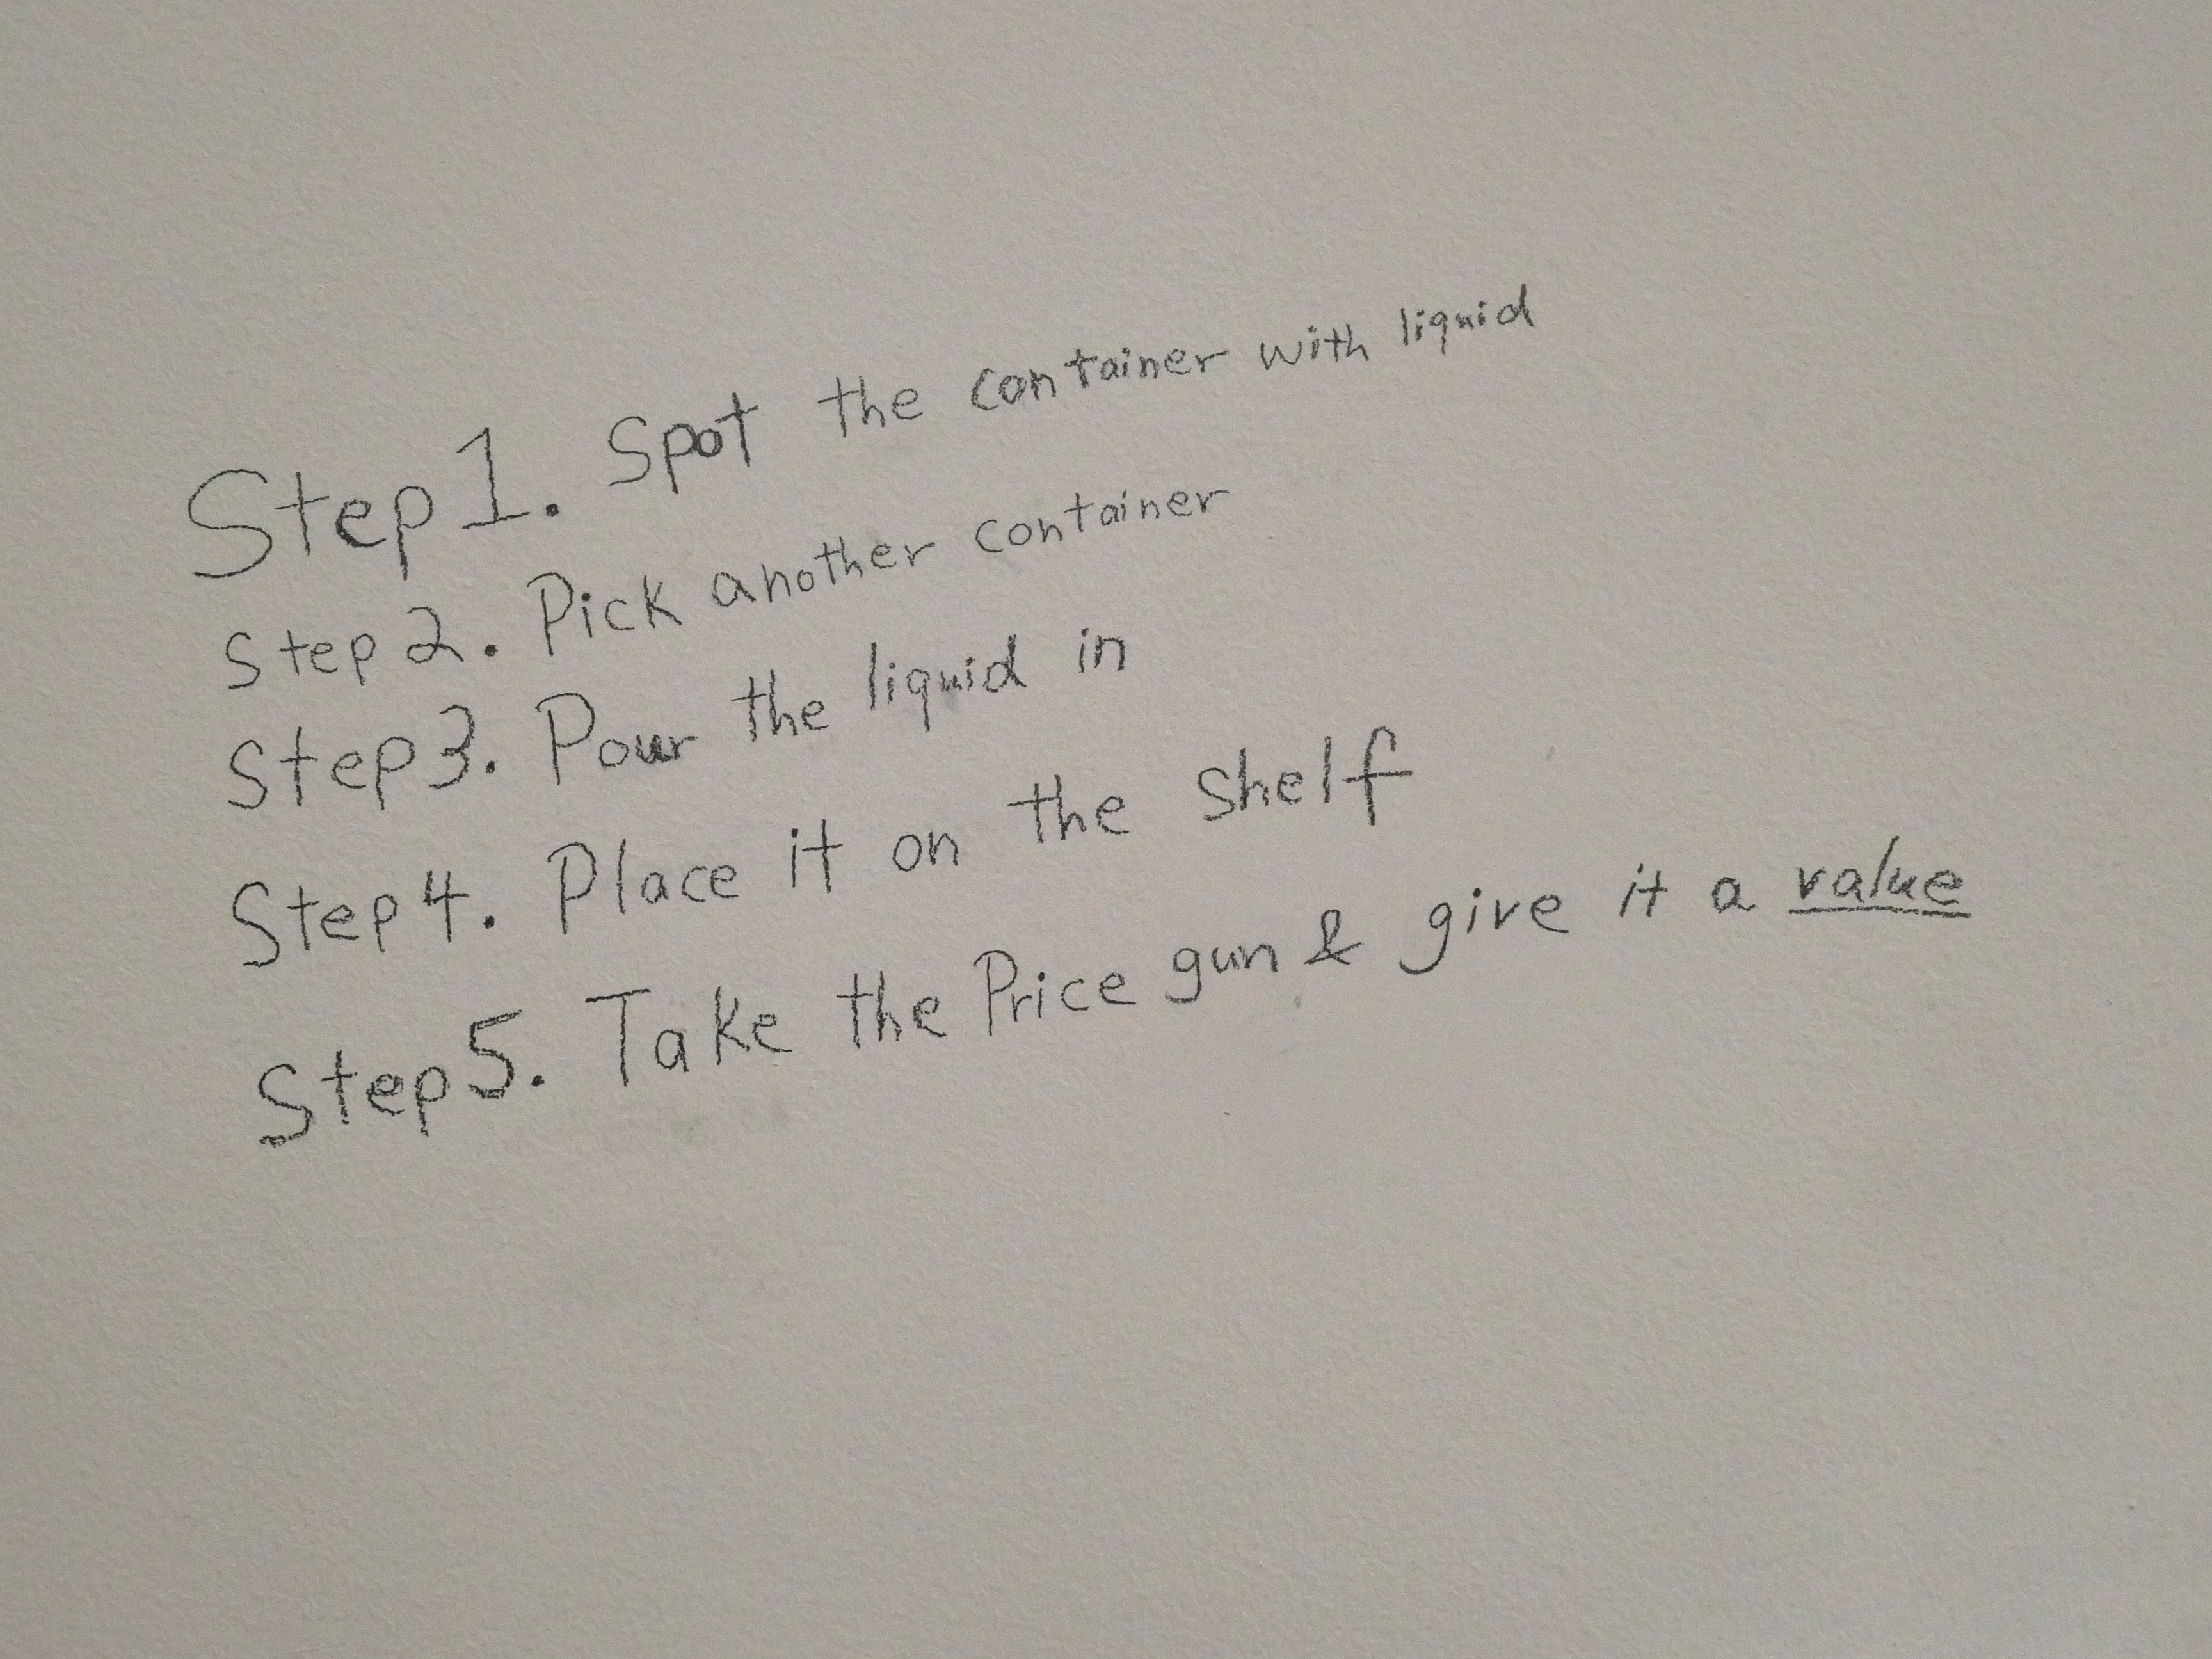 Step 1. Spot the container with liquid
Step 2. Pick another container
Step 3. Pour the liquid in
Step 4. Place it on the shelf
Step 5. Take the Price gun & give it a value